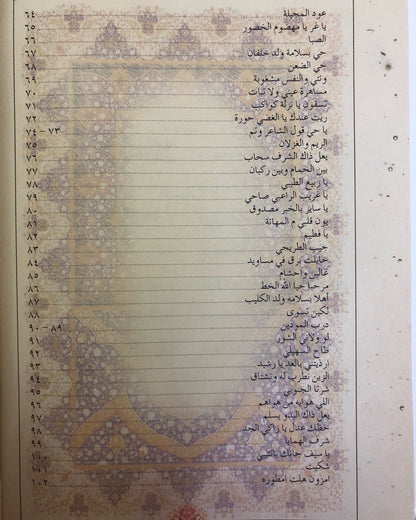 عود المجيلة ٦٤
يا غر يا مهضوم الخصور ٦٥
الصبا ٦٦
حي بسلامة ولد خلفان ٦٧
حي الضعن ٦٨
ونتي والنفس مشغوبة ٦٩
مساهرة عيني ولا تبات ٧٠
تسقون يا نزلة كواكب ٧١
ريت عندك يا الغضي حورة ٧٢
يا حي قول الشاعر وتم ٧٣ – ٧٤
الريم والغزلان ٧٥
بعل ذاك الشرف سحاب ٧٦
بين الحمام وبين ركبان ٧٧
يا ربيع الطيبي ٧٨
يا غريب الراعبي صاحي ٧٩
يا ساير بالخبر مصدوق ٨٠
يون قلبي م المهانة ٨١
يا فطيم ٨٢
جيب الطريحي ٨٣
خايلت برق في مساويد ٨٤
غالين واحشام ٨٥
مرحبا حيا الله الخط ٨٦
أهلا بسلامه ولد الكليب ٨٧
لكين تسوى ٨٨
درب المودين ٨٩ – ٩٠
لو ولاني الشور ٩١
طاح السهيلي ٩٢
ارذيتني بالعد يا رشيد ٩٣
الزين نطرب له ونشتاق ٩٤
شرتا الجنوبي ٩٥
اللي هوايه من هواهم ٩٦
بعل ذاك البدو يسلم ٩٧
حظك عدل يا زاكي الجد ٩٨
شرف الهمايا ٩٩
يا سيف جانك باكتبي ١٠٠
شكيت ١٠١
امزون هلت امطوره ١٠٢